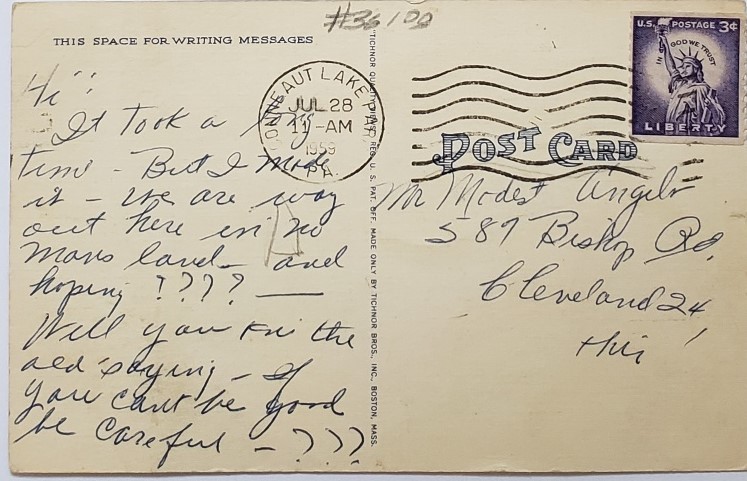 #36100
THIS SPACE FOR WRITING MESSAGES
Hi"
It took a long
time - But I made
it - We are way
out here in no
mans land - and
hoping ???? —
Well you kni the
old saying - If
you cant be good
be careful - ???
CONNEAUT LAKE PARK
JUL 28
11-AM
1959
PA.
"TICHNOR QUALITY VIEWS," REG. U. S. PAT. OFF. MADE ONLY BY TICHNOR BROS., INC., BOSTON, MASS.
U.S. POSTAGE 3¢
IN GOD WE TRUST
LIBERTY
POST CARD
Mr Modest Angelo
589 Bishop Rd,
Cleveland 24